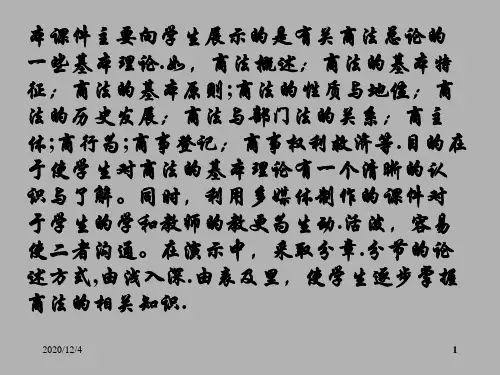 本课件主要向学生展示的是有关商法总论的
一些基本理论.如，商法概述；商法的基本特
征；商法的基本原则;商法的性质与地位；商
法的历史发展；商法与部门法的关系；商主
体;商行为;商事登记；商事权利救济等.目的在
于使学生对商法的基本理论有一个清晰的认
识与了解。同时，利用多媒体制作的课件对
于学生的学和教师的教更为生动.活泼，容易
使二者沟通。在演示中，采取分章.分节的论
述方式,由浅入深.由表及里，使学生逐步掌握
商法的相关知识.
2020/12/4
1